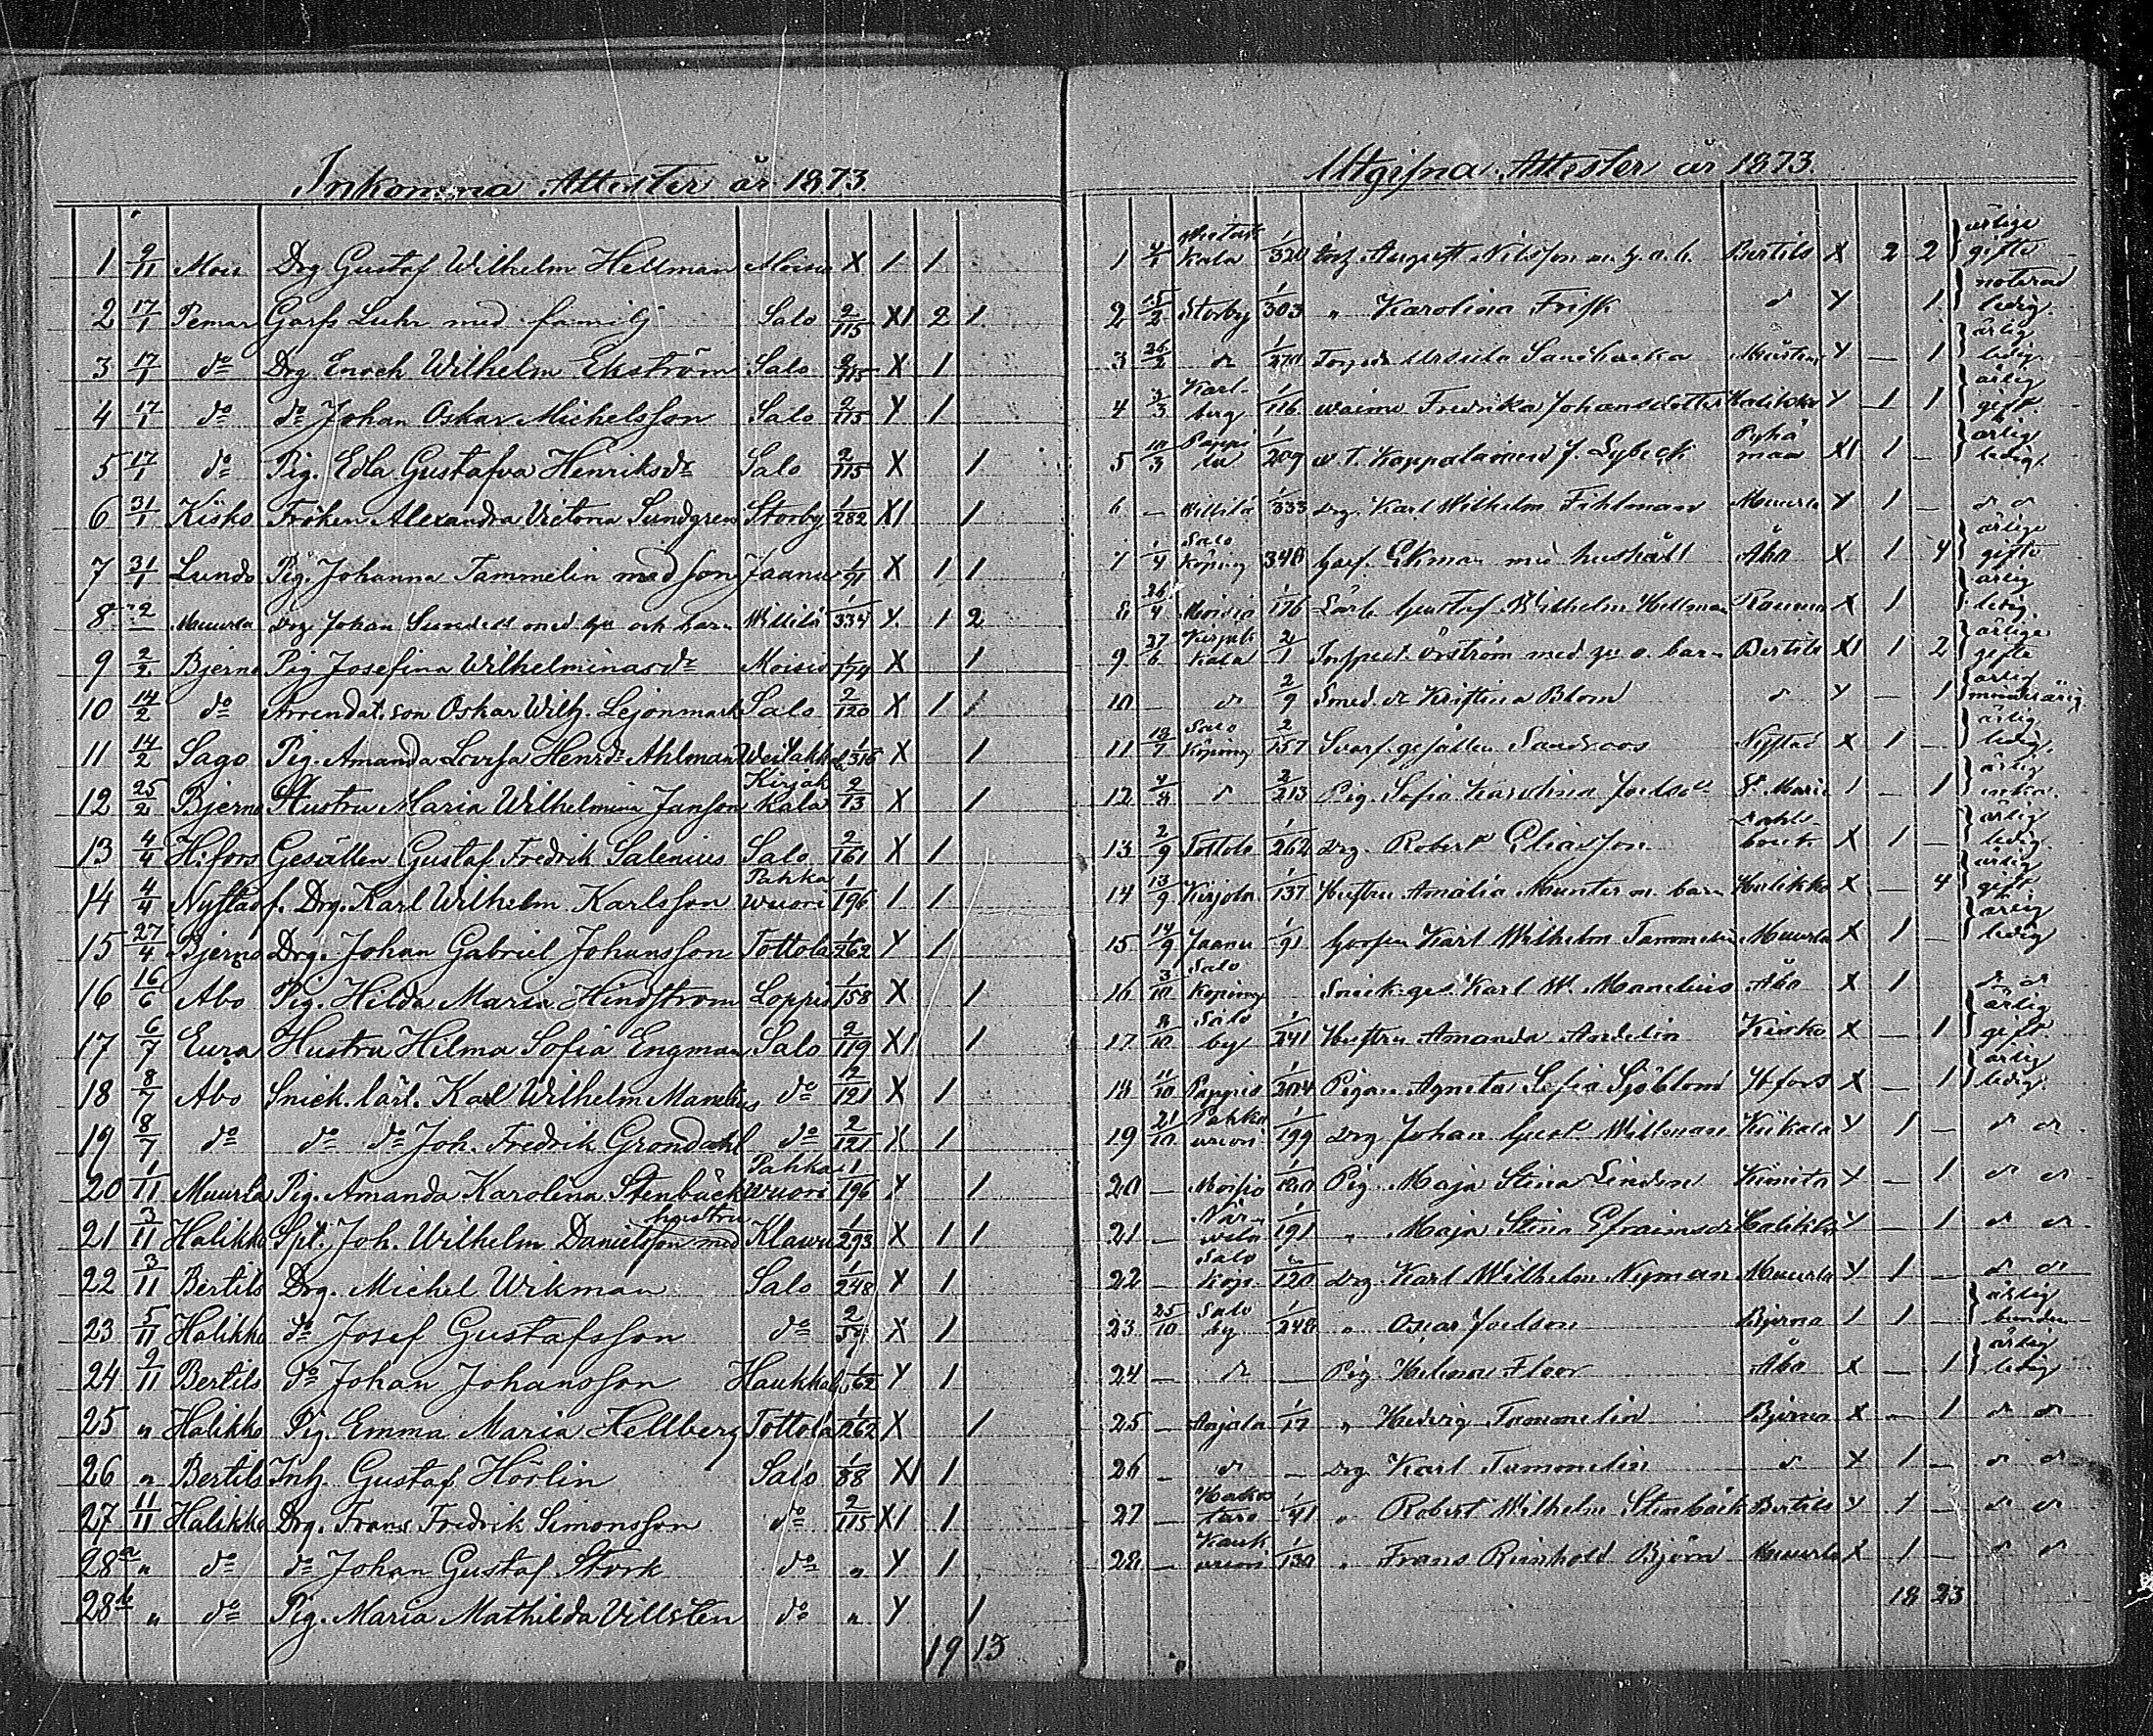 Inkomna Attester år 1873
1 9/11 Mois Drg Gustaf Wilhelm Hellman Moisio X 1 1
2 17/1 Pemar Garfv Luhr med familj Salo 2/115 XI 2 1
3 17/1 do Drg Enoch Wilhelm Ekström Salo 2/115 X 1
4 17/1 do do Johan Oskar Michelsson Salo 2/115 Y 1
5 17/1 do Pig. Edla Gustafva Henriksdr Salo 2/115 X 1
6 31/1 Kisko Fröken Alexandra Victoria Sundgren Storby 1/282 XI 1
7 31/1 Lundo Pig. Johanna Tammelin med son Jaanu 1/91 X 1 1
8 2 Muurla Drg Johan Sundell med hu och barn Willilä 1/334 Y 1 2
9 2/2 Bjerno Pig Josefina Wilhelminasdr Moisio 1/174 X 1
10 14/2 do Arrendat. son Oskar Wilh. Lejonmark Salo 2/120 X 1 1
11 14/2 Sago Pig. Amanda Lovisa Henrdr Ahlman 1/316 X 1
12 25/2 Bjerno Hustru Maria Wilhelmina Janson Kirjakkala 2/13 X 1
13 4/4 H:fors Gesällen Gustaf Fredrik Salenius Salo 2/161 X 1
14 4/4 Nystad f. Drg. Karl Wilhelm Karlsson Pahkawuori 1/196 1 1
15 27/4 Bjerno Drg. Johan Gabriel Johansson Tottola 1/262 Y 1
16 16/6 Abo Pig. Hilda Maria Hindström Loppis 1/158 X 1
17 6/7 Eura Hustru Hilma Sofia Engman Salo 2/119 XI 1
18 8/7 Åbo Snick. lärl. Karl Wilhelm Manelius do 2/121 X 1
19 8/7 do do do Joh. Fredrik Grondahl do 2/121 X 1
20 1/11 Muurla Pig. Amanda Karolina Stenbäck Pahkawuori 1/196 Y 1
21 3/11 Halikko Spt. Joh. Wilhelm Danielsson med hustru Klawu 1/293 X 1 1
22 3/11 Bertils Drg. Michel Wikman Salo 1/248 Y 1
23 5/11 Halikko do Josef Gustafsson do 2/59 X 1
24 9/11 Bertils do Johan Johansson Haukkala 1/62 Y 1
25 " Halikko Pig. Emma Maria Hellberg Tottola 1/262 X 1
26 " Bertils Inh. Gustaf Hörlin Salo 1/88 XI 1
27 11/11 Halikko Drg. Frans Fredrik Simonsson do 2/115 XI 1
28a " do do Johan Gustaf Stork do " Y 1
28b " do Pig. Maria Mathilda Villsten do " Y 1
19 15
Utgifna Attester år 1873.
1 4/1 kala 1/320 August Nilsson m. h. o. b. Bertils X 2 2 ärlige gifte
2 15/2 Storby 1/303 " Karolina Frisk d Y 1 noterad ledig.
3 26/2 d 1/270 Ursula Y — 1 ärlig ledig.
4 3/3 Karlberg 1/116 Fredrika Johansdotter Halikko Y — 1 1 ärlig gift.
5 10/3 Pappila 1/209 J. Lybeck Pyhämaa XI 1 — ärlig ledig.
6 — Willilä 1/333 Drg. Karl Wilhelm Fihlman Muurla Y 1 — d d
7 1/4 Salo Köping 348 Garf. Ekman med hushåll Åbo X 1 4 ärlige gifte
8 26/4 Moisio 1/176 Lärl. Gustaf Wilhelm Hellman X 1 ärlig ledig.
9 27/6 Kirjakkala 2/1 Inspect. Öström med hu o. barn Bertils XI 1 2 ärlige gifte
10 — d 2/9 Smed. dr Kristina Blom d Y — 1 ärlig minderårig
11 18/7 Salo Köping 2/157 Svarf. gesällen Sandroos Nystad X 1 — ärlig ledig.
12 4/8 d 2/213 Pig. Sofia Karolina Joelsdr St Marie 1 — 1 ärlig enka.
13 2/9 Tottola 1/262 Drg. Robert Eliasson X 1 — ärlig ledig.
14 13/9 Kirjola 1/137 Hustru Amalia Munter m. barn Halikko X — 4 ärlig gift
15 14/9 Jaanu 1/91 Karl Wilhelm Tammelin Muurla X 1 — ärlig ledig
16 3/10 Salo Köping Snick. ges. Karl W. Manelius Åbo X 1 d d
17 8/10 Salo by 1/241 Hustru Amanda Andelin Kisko X — 1 ärlig gift.
18 11/10 Pappis 1/204 Pigan Agneta Sofia Sjöblom H:fors X — 1 ärlig ledig.
19 21/10 Pahkavuori 1/199 Drg Johan Gust. Willman Kiikala Y 1 — d d
20 — Moisio 1/180 Pig. Maja Stina Linden Kimito Y — 1 d d
21 — 1/191 " Maja Stina Efraimsdr Halikko Y — 1 d d
22 — Salo köp. 2/120 Drg Karl Wilhelm Nyman Muurla Y 1 — d d
23 25/10 Salo by 1/248 " Oskar Joelson Bjerno 1 1 — ärlig bunden
24 — d — Pig Helena Floor Åbo X — 1 ärlig ledig
25 — Anjala 1/17 " Hedvig Tammelin Bjerno X — 1 d d
26 — d — Drg Karl Tammelin d Y 1 — d d
27 — 1/41 " Robert Wilhelm Stenbäck Bertils Y 1 — d d
28 — 1/130 " Frans Reinhold Björn Muurla X 1 — d d
18 23